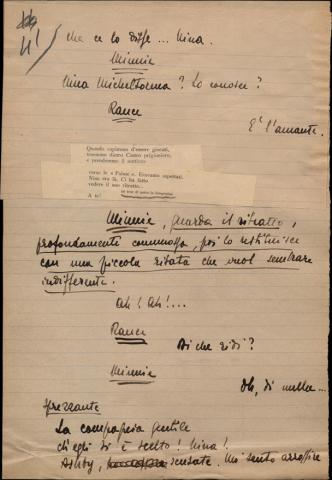 41
che ce lo disse ... Nina.
Minnie
Nina Micheltorena? Lo conosce?
Rance
E' l'amante.
Quando capimmo d'essere giocati,
traemmo dietro Castro prigioniero,
e prendemmo il sentiero
verso le « Palme ». Eravamo aspettati.
Nina era là. Ci ha fatto
vedere il suo ritratto...
A te!
Minnie, guarda il ritratto,
profondamente commossa, poi lo restituisce
con una piccola risata che vuol sembrare
indifferente.
Ah! Ah!...
Rance
Di che ridi?
Minnie
Oh, di nulla...
sprezzante
La compagnia gentile
ch'egli si è scelto! Nina!
Ashby, scusate. Mi sento arrossire